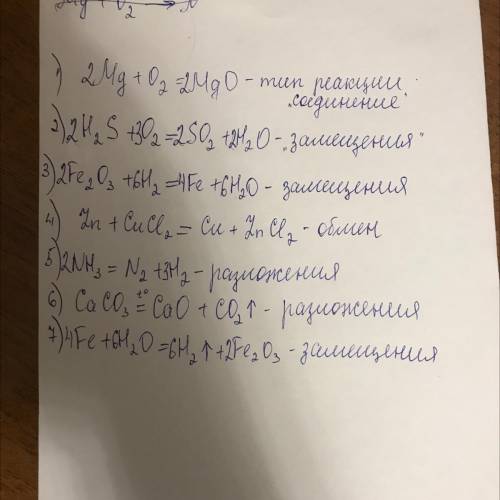 1) 2Mg + O₂ = 2MgO - тип реакции
"соединение"
2) 2H₂S + 3O₂ = 2SO₂ + 2H₂O - "замещения"
3) 2Fe₂O₃ + 6H₂ = 4Fe + 6H₂O - замещения
4) Zn + CuCl₂ = Cu + ZnCl₂ - обмен
5) 2NH₃ = N₂ + 3H₂ - разложения
6) CaCO₃ t°= CaO + CO₂↑ - разложения
7) 4Fe + 6H₂O = 6H₂↑ + 2Fe₂O₃ - замещения